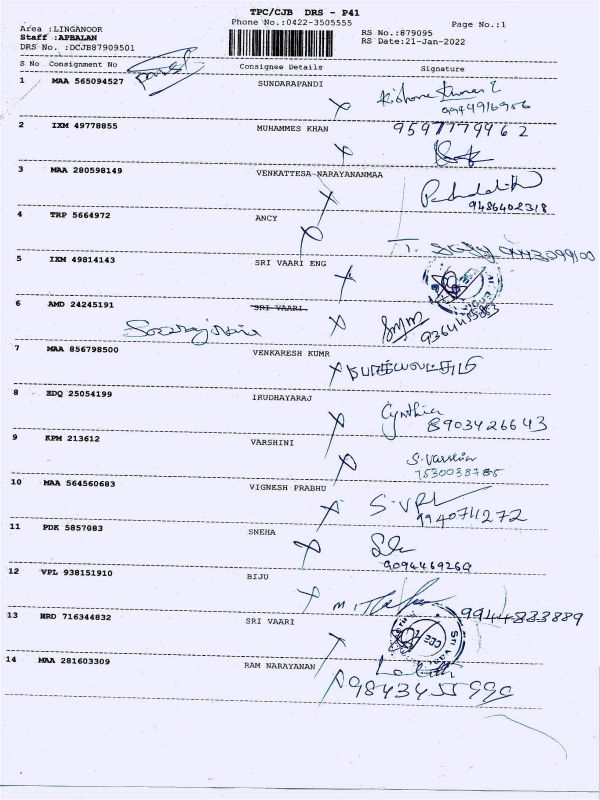 TPC/CJB DRS - P41
Phone No.:0422-3505555
Page No.:1
Area :LINGANOOR
Staff :APBALAN
DRS No. :DCJB87909501
RS No.:879095
RS Date:21-Jan-2022
S No Consignment No Consignee Details Signature
1 MAA 565094527 SUNDARAPANDI Kishore Kumar
9944916956
2 IXM 49778855 MUHAMMES KHAN 9597779962
3 MAA 280598149 VENKATTESA NARAYANANMAA
9486402318
4 TRP 5664972 ANCY
5 IXM 49814143 SRI VAARI ENG
6 AMD 24245191 SRI VAARI
7 MAA 856798500 VENKARESH KUMR
8 ZDQ 25054199 IRUDHAYARAJ Cynthia
8903426643
9 KPM 213612 VARSHINI S. Varshini
7530038785
10 MAA 564560683 VIGNESH PRABHU S. VPL
9940711272
11 PDK 5857083 SNEHA
9094469269
12 VPL 938151910 BIJU
9944833889
13 HRD 716344832 SRI VAARI
14 MAA 281603309 RAM NARAYANAN Lalith